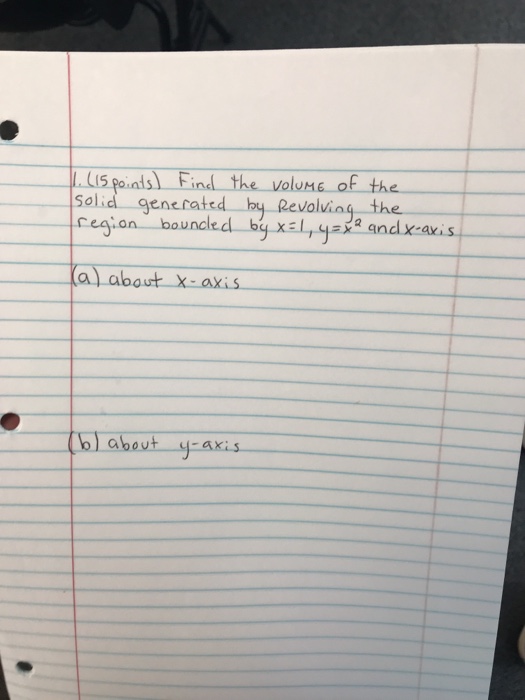 1. (15 points) Find the volUME of the
solid generated by Revolving the
region bounded by x=1, y=x² and x-axis
(a) about x-axis
(b) about y-axis